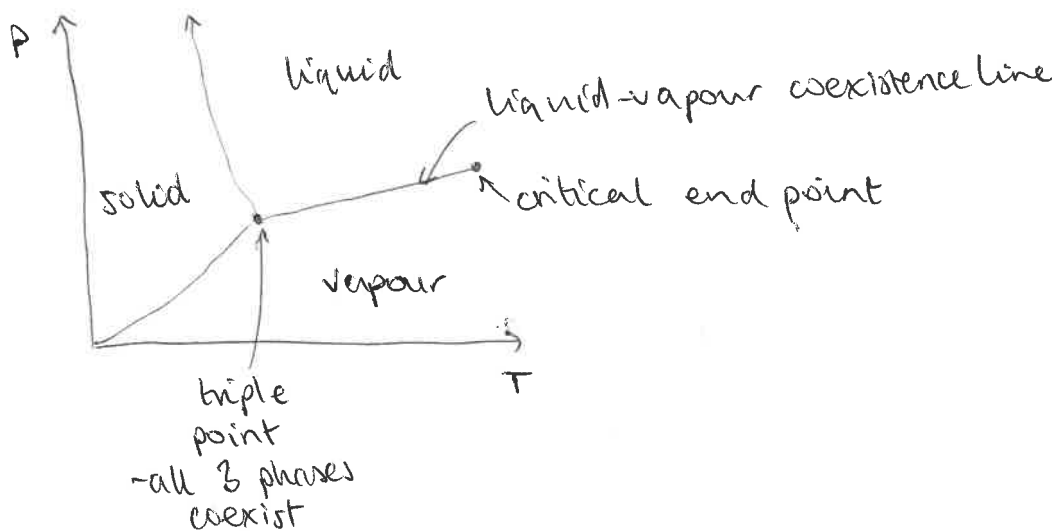 P
liquid
liquid-vapour coexistence line
solid
critical end point
vapour
T
triple
point
-all 3 phases
coexist